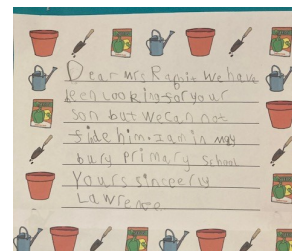 Dear Mrs Rabit We have
been Looking for your
son but we can not
fide him. I am in
bury primary school
Yours sinceerly
Lawrence